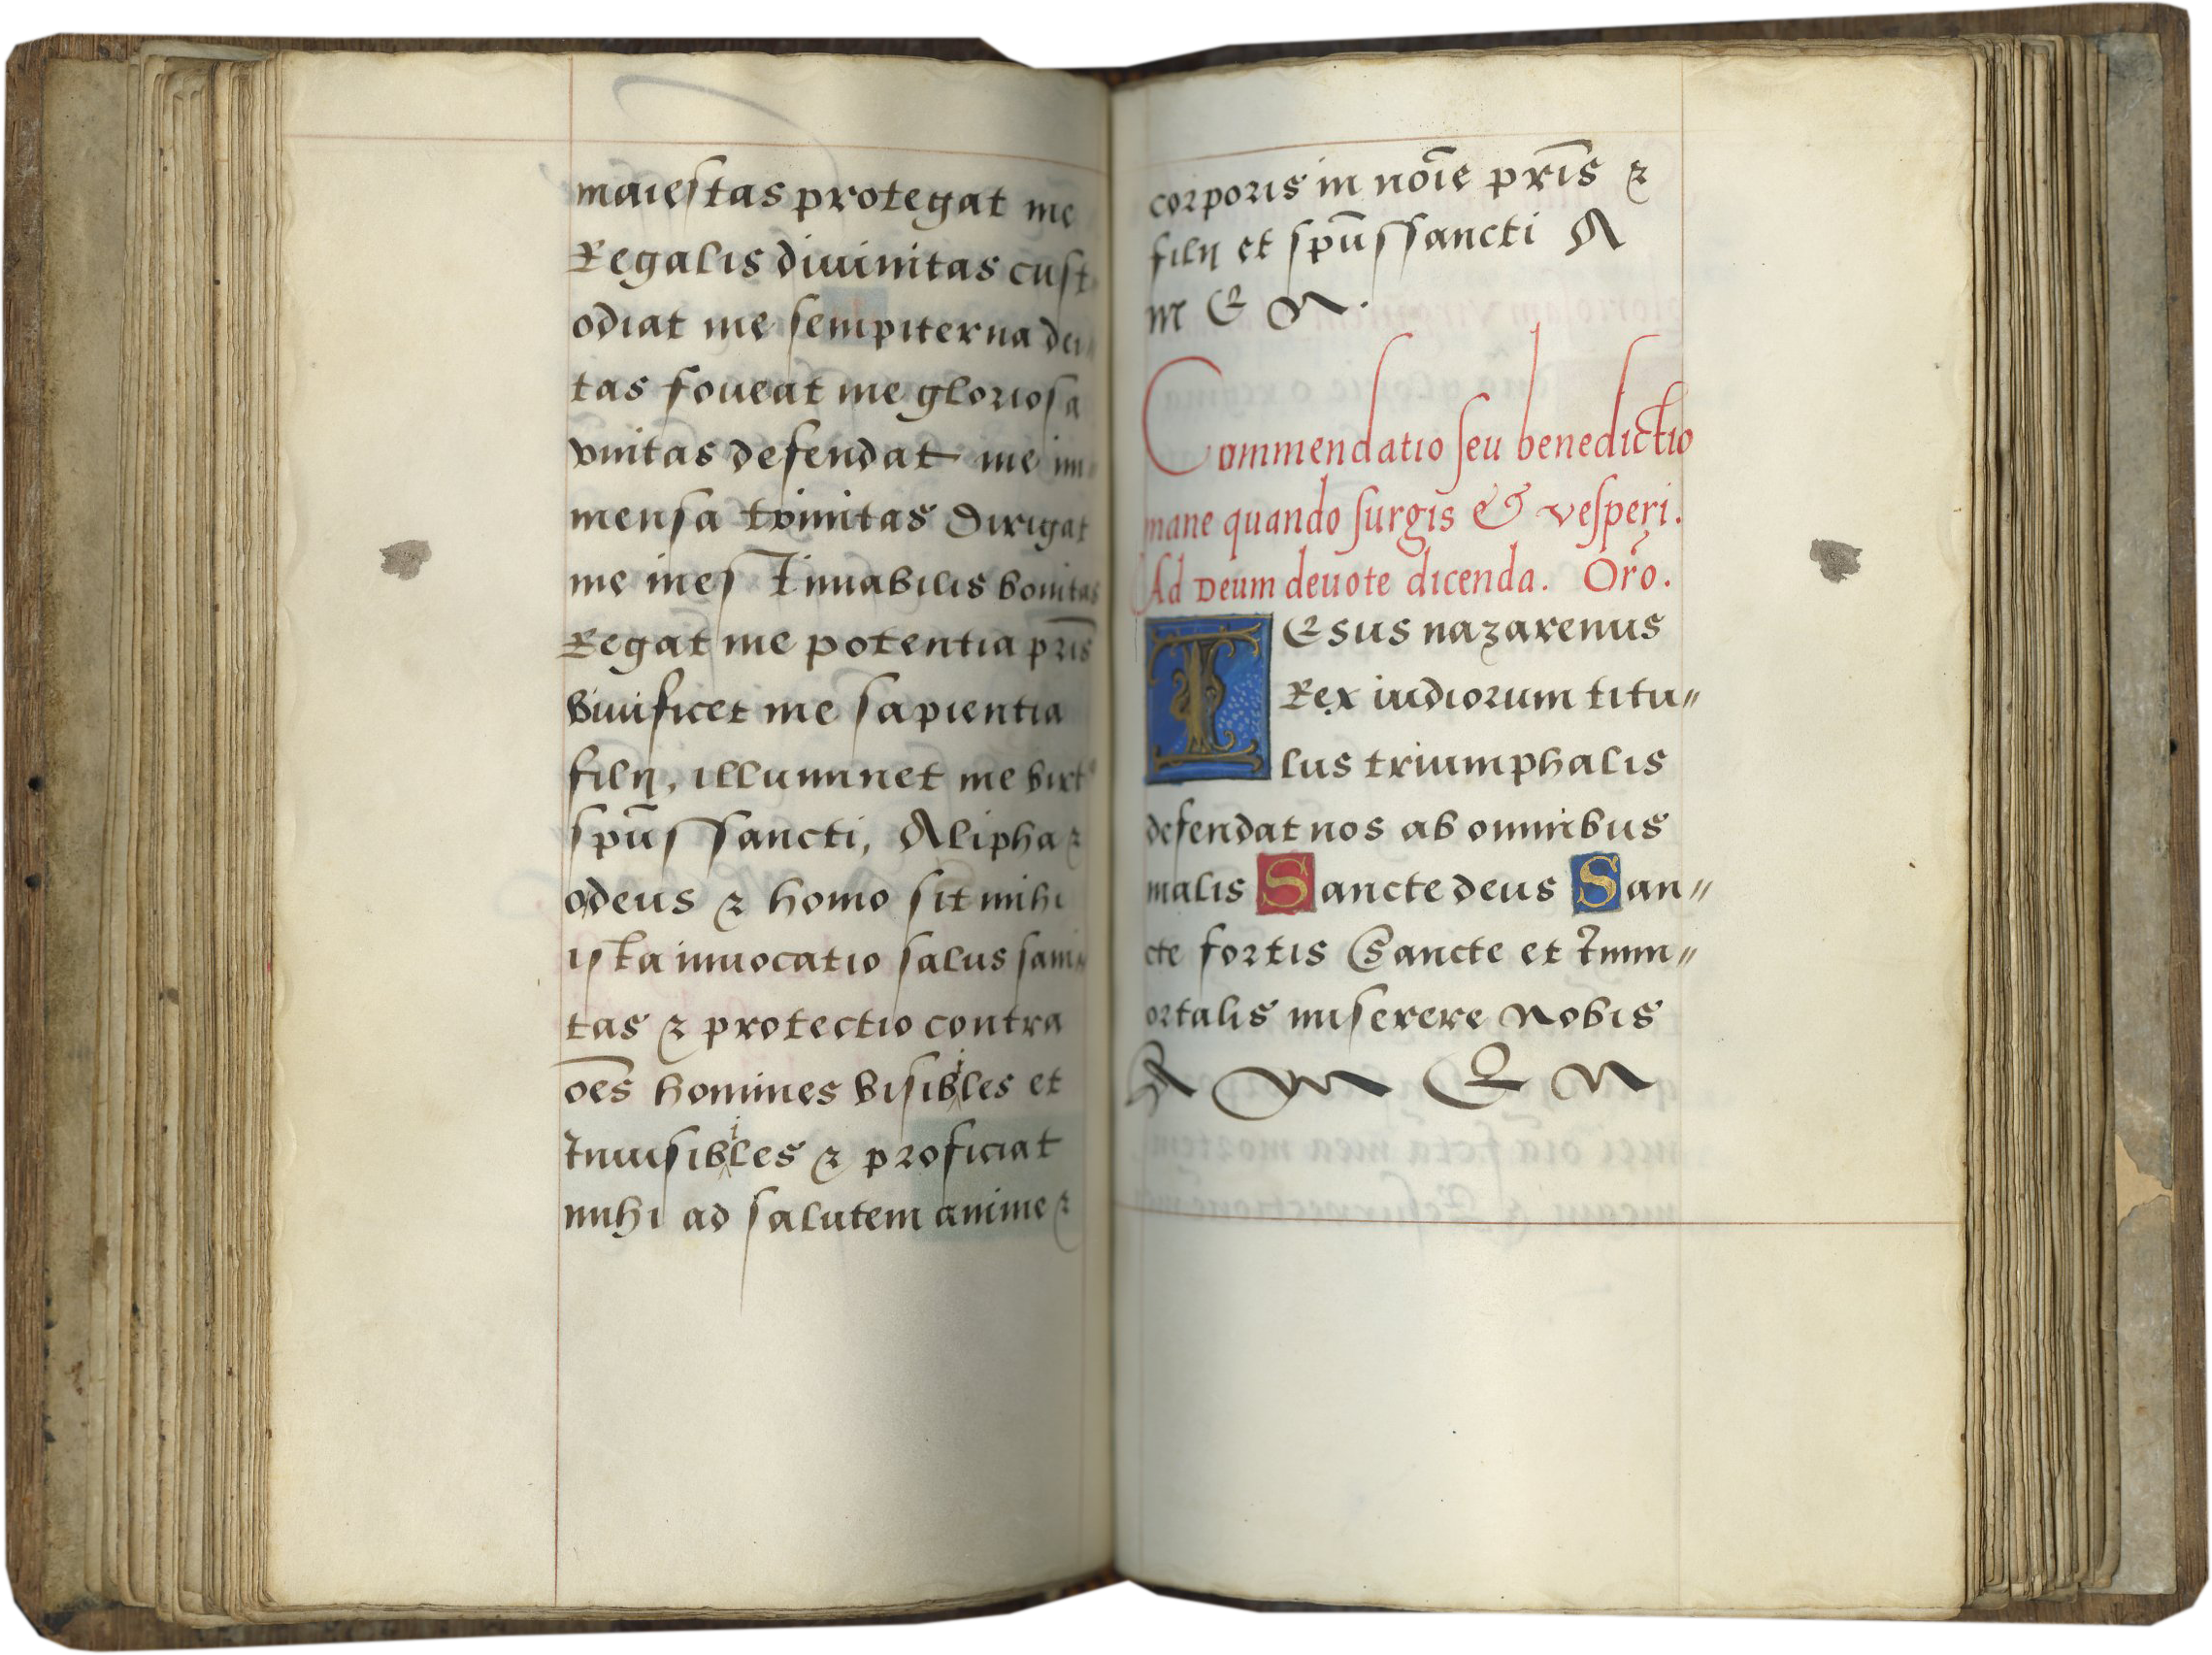 maiestas protegat me
Regalis diuinitas cust
odiat me sempiterna dei
tas foueat me gloriosa
vnitas defendat me im
mensa trinitas Dirigat
me ines Timabilis bonitas
Regat me potentia pr̄is
viuificet me sapientia
filij, illuminet me virt9
spūs sancti, Alpha ⁊
o deus ⁊ homo sit mihi
ista inuocatio salus sani
tas ⁊ protectio contra
oēs homines visibiles et
Inuisibiles ⁊ proficiat
mihi ad salutem anime ⁊
corporis in nōie pr̄is ⁊
filij et spūs sancti A
M E N.
Commendatio seu benedictio
mane quando surgis & vesperi.
Ad Deum deuote dicenda. Orō.
IEsus nazarenus
Rex iudiorum titu〃
lus triumphalis
defendat nos ab omnibus
malis Sancte deus San〃
cte fortis Sancte et Imm〃
ortalis miserere Nobis
A M E N